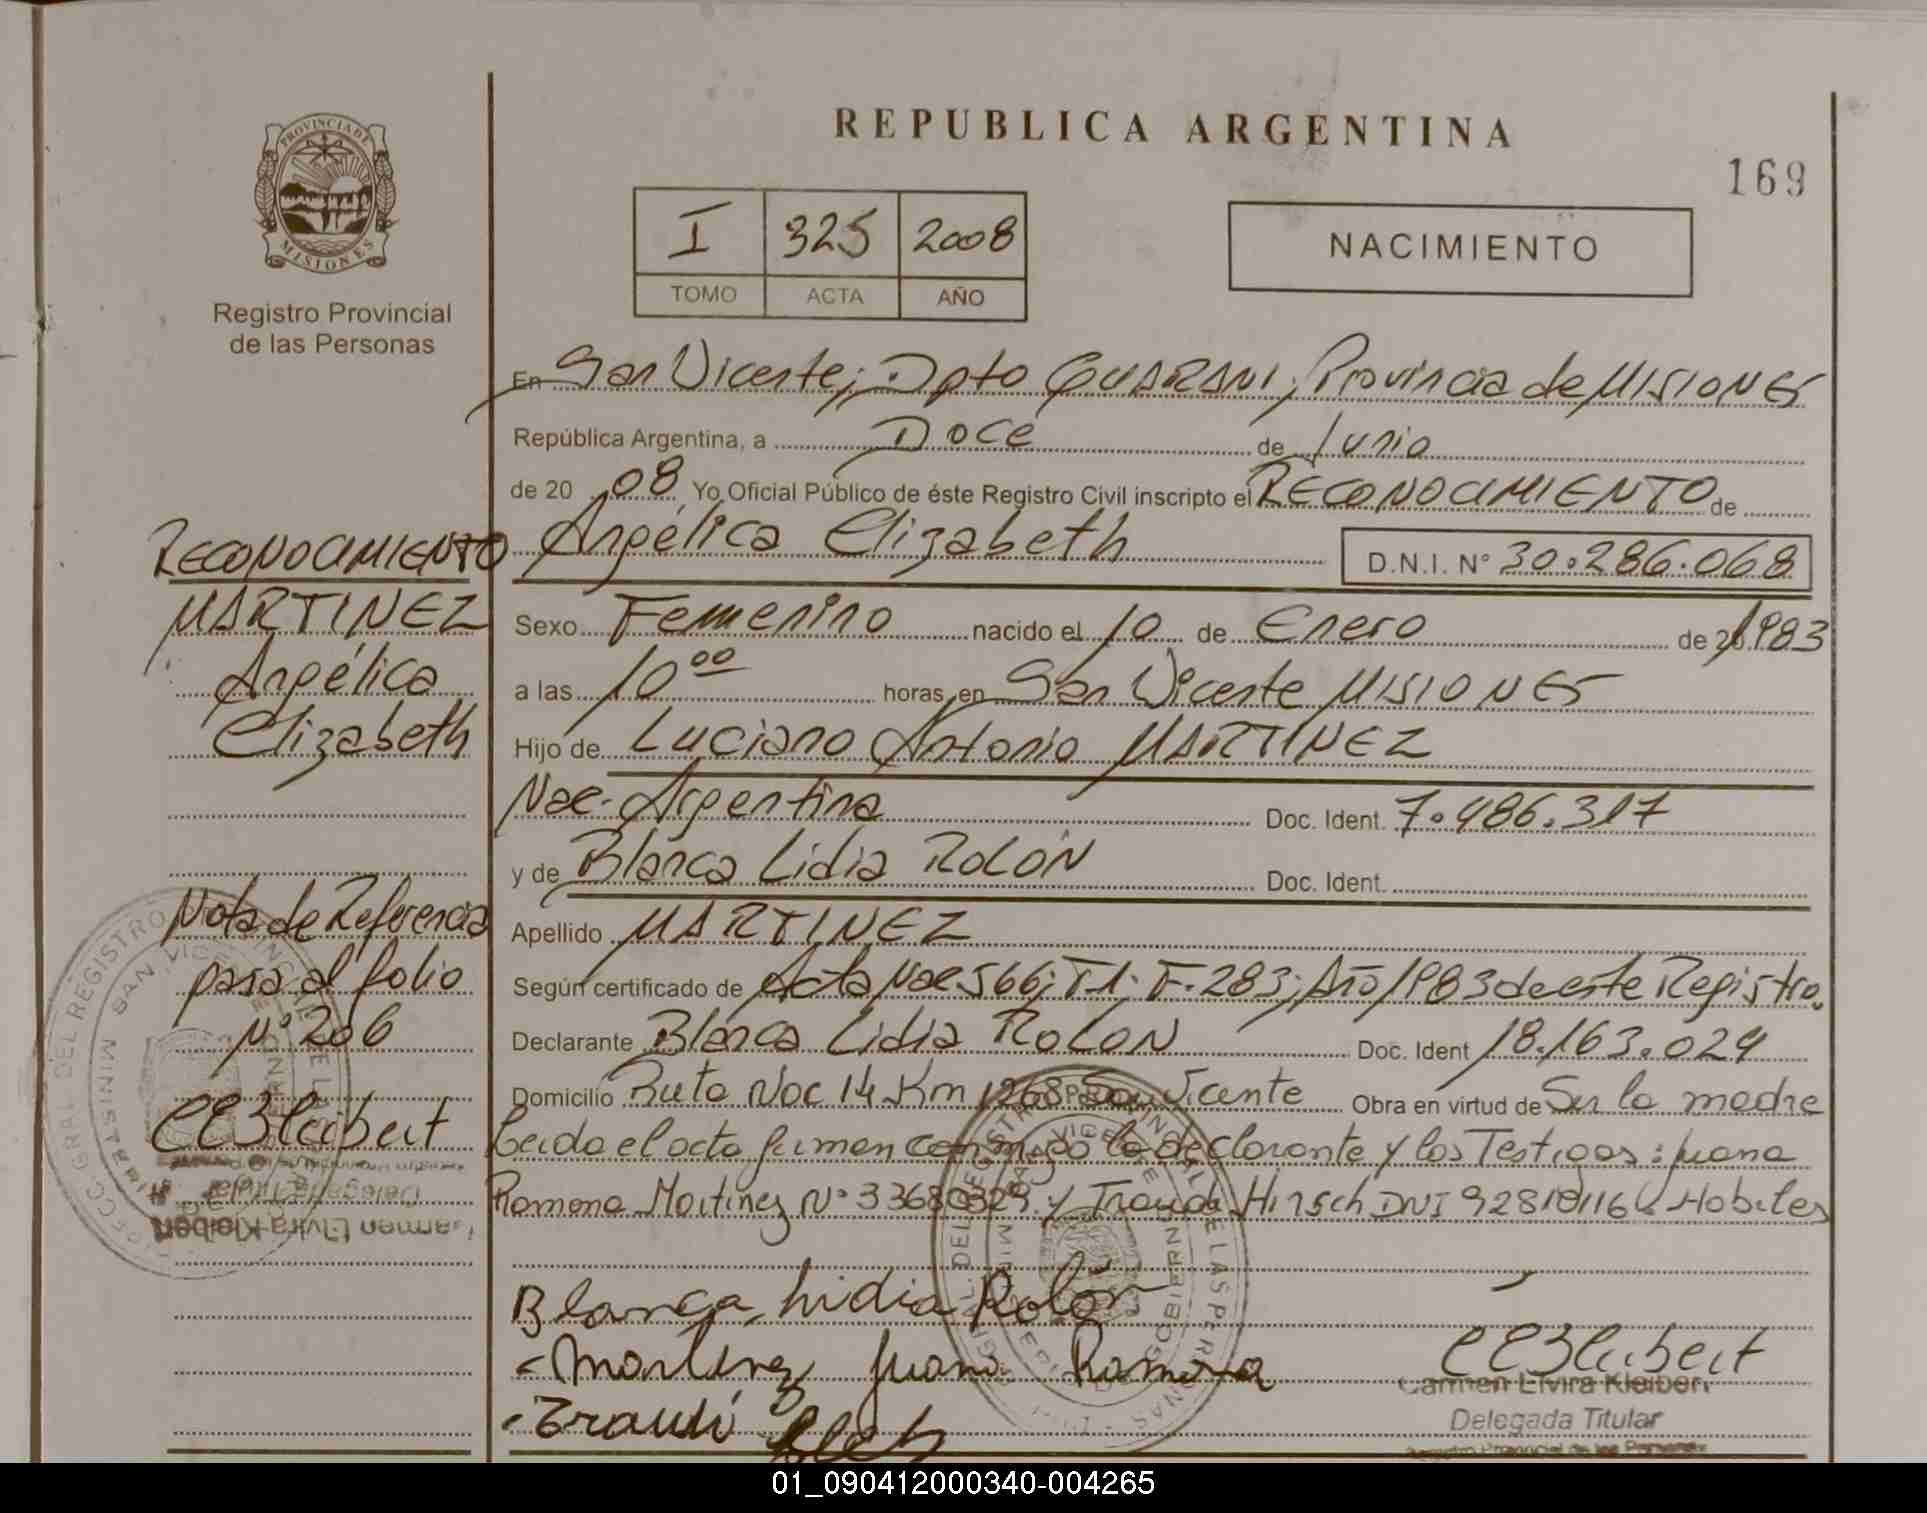 REPUBLICA ARGENTINA
169
PROVINCIA DE
MISIONES
Registro Provincial
de las Personas
I 325 2008
TOMO ACTA AÑO
NACIMIENTO
En San Vicente; Dpto GUARANI; Provincia de MISIONES
República Argentina, a Doce de Junio
de 20 08 Yo Oficial Público de éste Registro Civil inscripto el RECONOCIMIENTO de
Angélica Elizabeth D.N.I. Nº 30.286.068
Sexo Femenino nacido el 10 de Enero de 1983
a las 10 00 horas, en San Vicente MISIONES
Hijo de Luciano Antonio MARTINEZ
Nac. Argentina Doc. Ident. 7.486.317
y de Blanca Lidia ROLÓN Doc. Ident.
Apellido MARTINEZ
Según certificado de Acta Nac 566; T.1; F. 283; Año 1983 de este Registro.
Declarante Blanca Lidia ROLON Doc. Ident 18.163.024
Domicilio Ruta Nac 14 Km 1268 San Vicente Obra en virtud de Ser la madre
Leida el acta firman conmigo la declarante y los Testigos: Juana
Ramona Martinez Nº 33680329 y Traudi Hirsch DNI 92810116 Habiles
Blanca Lidia Rolón
Martinez Juana Ramona
Traudi
Carmen Elvira Kleibert
Delegada Titular
Registro Provincial de las Personas
RECONOCIMIENTO
MARTINEZ
Angélica
Elizabeth
Nota de Referencia
pasa al folio
Nº 206
Delegada Titular
Carmen Elvira Kleibert
01_090412000340-004265